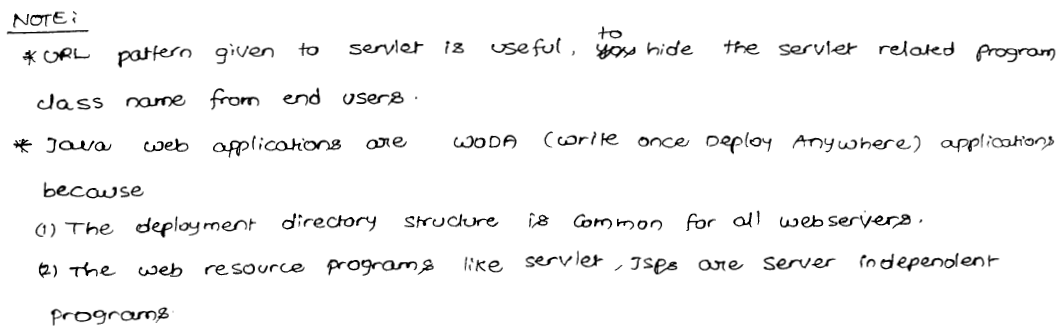 NOTE:
* URL pattern given to servlet is useful, to hide the servlet related program
class name from end users.
* Java web applications are WODA (write once Deploy Anywhere) applications
because
(1) The deployment directory structure is Common for all webservers.
(2) The web resource programs like servlet, JSPs are server independent
programs